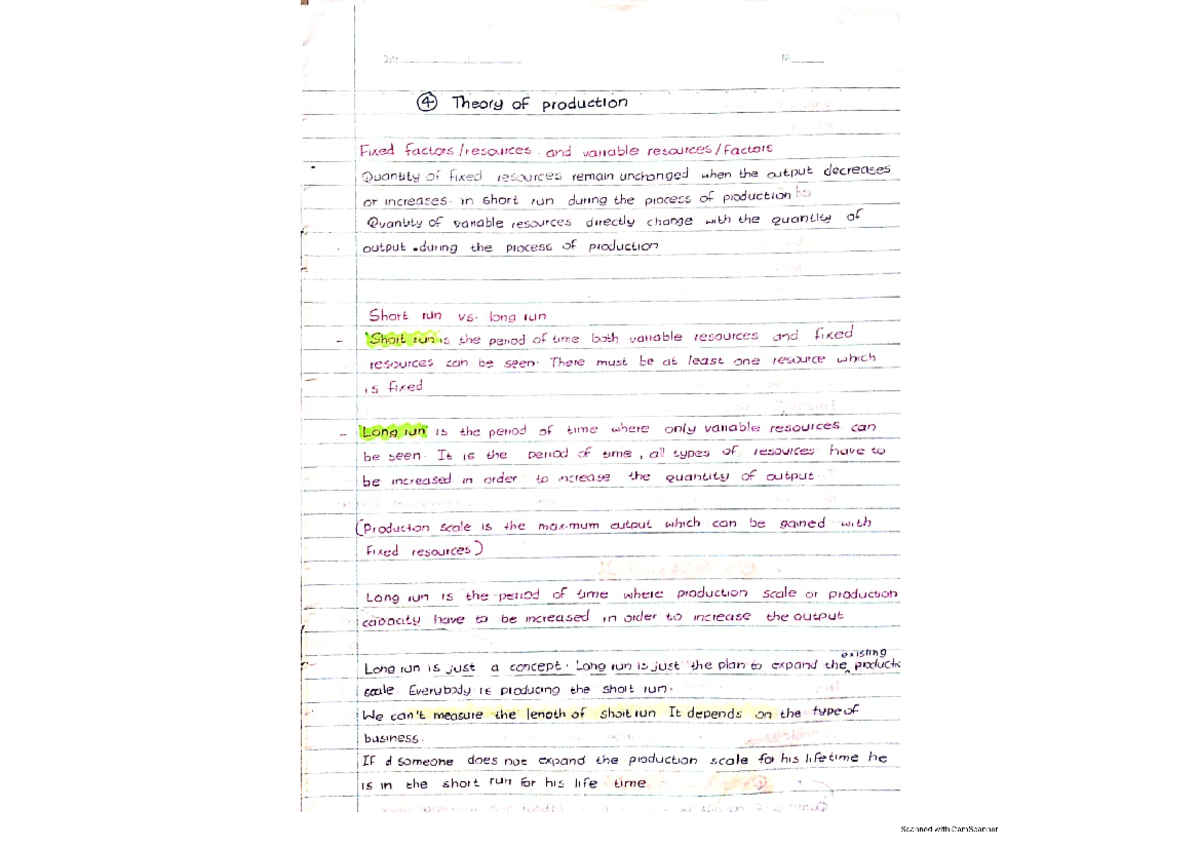 ④ Theory of production
Fixed factors/resources and variable resources/factors
Quantity of fixed resources remain unchanged when the output decreases
or increases in short run during the process of production
Quantity of variable resources directly change with the quantity of
output during the process of production
Short run vs. long run
- Short run is the period of time both variable resources and fixed
resources can be seen. There must be at least one resource which
is fixed
- Long run is the period of time where only variable resources can
be seen. It is the period of time, all types of resources have to
be increased in order to increase the quantity of output
(Production scale is the maximum output which can be gained with
fixed resources)
Long run is the period of time where production scale or production
capacity have to be increased in order to increase the output
existing
Long run is just a concept. Long run is just the plan to expand the producti
scale. Everybody is producing the short run.
We can't measure the length of short run It depends on the type of
business.
If someone does not expand the production scale for his lifetime he
is in the short run for his life time
Scanned with CamScanner